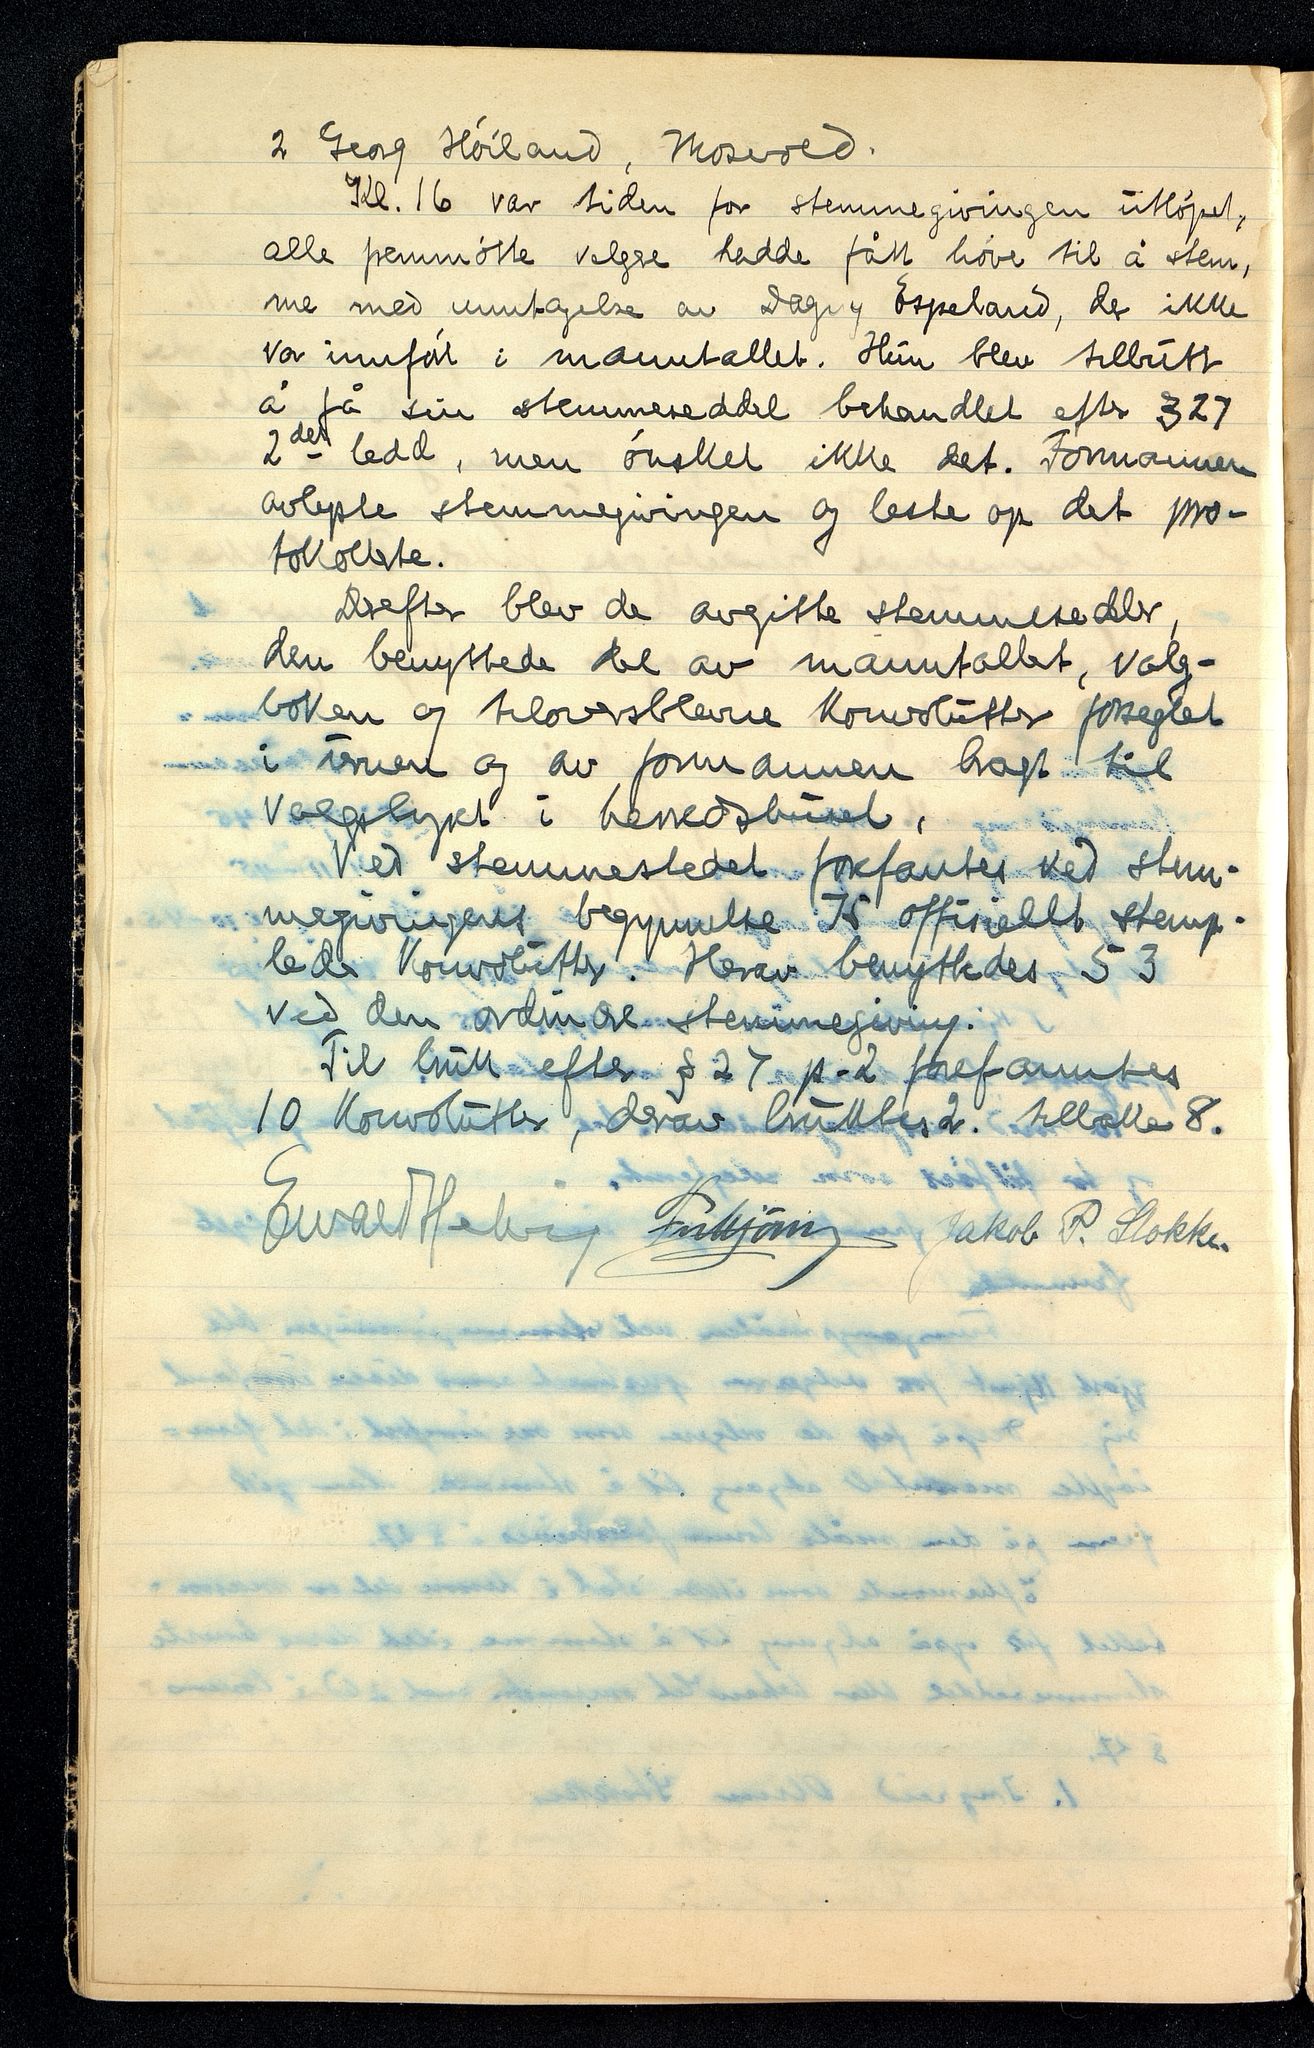 2 Georg Höiland, Mosvold.
Kl. 16 var tiden for stemmegivingen utlöpet,
alle fremmötte velgere hadde fått höve til å stem,
me med unntagelse av Dagny Espeland, der ikke
var innfört i manntallet. Hun blev tilbutt
å få sin stemmeseddel behandlet efter § 27
2det ledd, men önsket ikke det. Formannen
avlyste stemmegivingen og leste op det pro-
tokollerte.
Derefter blev de avgitte stemmesedler,
den benyttede del av manntallet, valg-
boken og tiloversblevne konvolutter forseglet
i urnen og av formannen bragt til
valgstyret i herredshuset,
Ved stemmestedet forefantes ved stem-
megivingens begynnelse 75 offisiellt stemp-
lede konvolutter. Herav benyttedes 53
ved den ordinære stemmegiving.
Til bruk efter § 27 p-2 forefanntes
10 konvolutter, derav bruktes 2. tilbake 8.
Jakob P. Stokke.